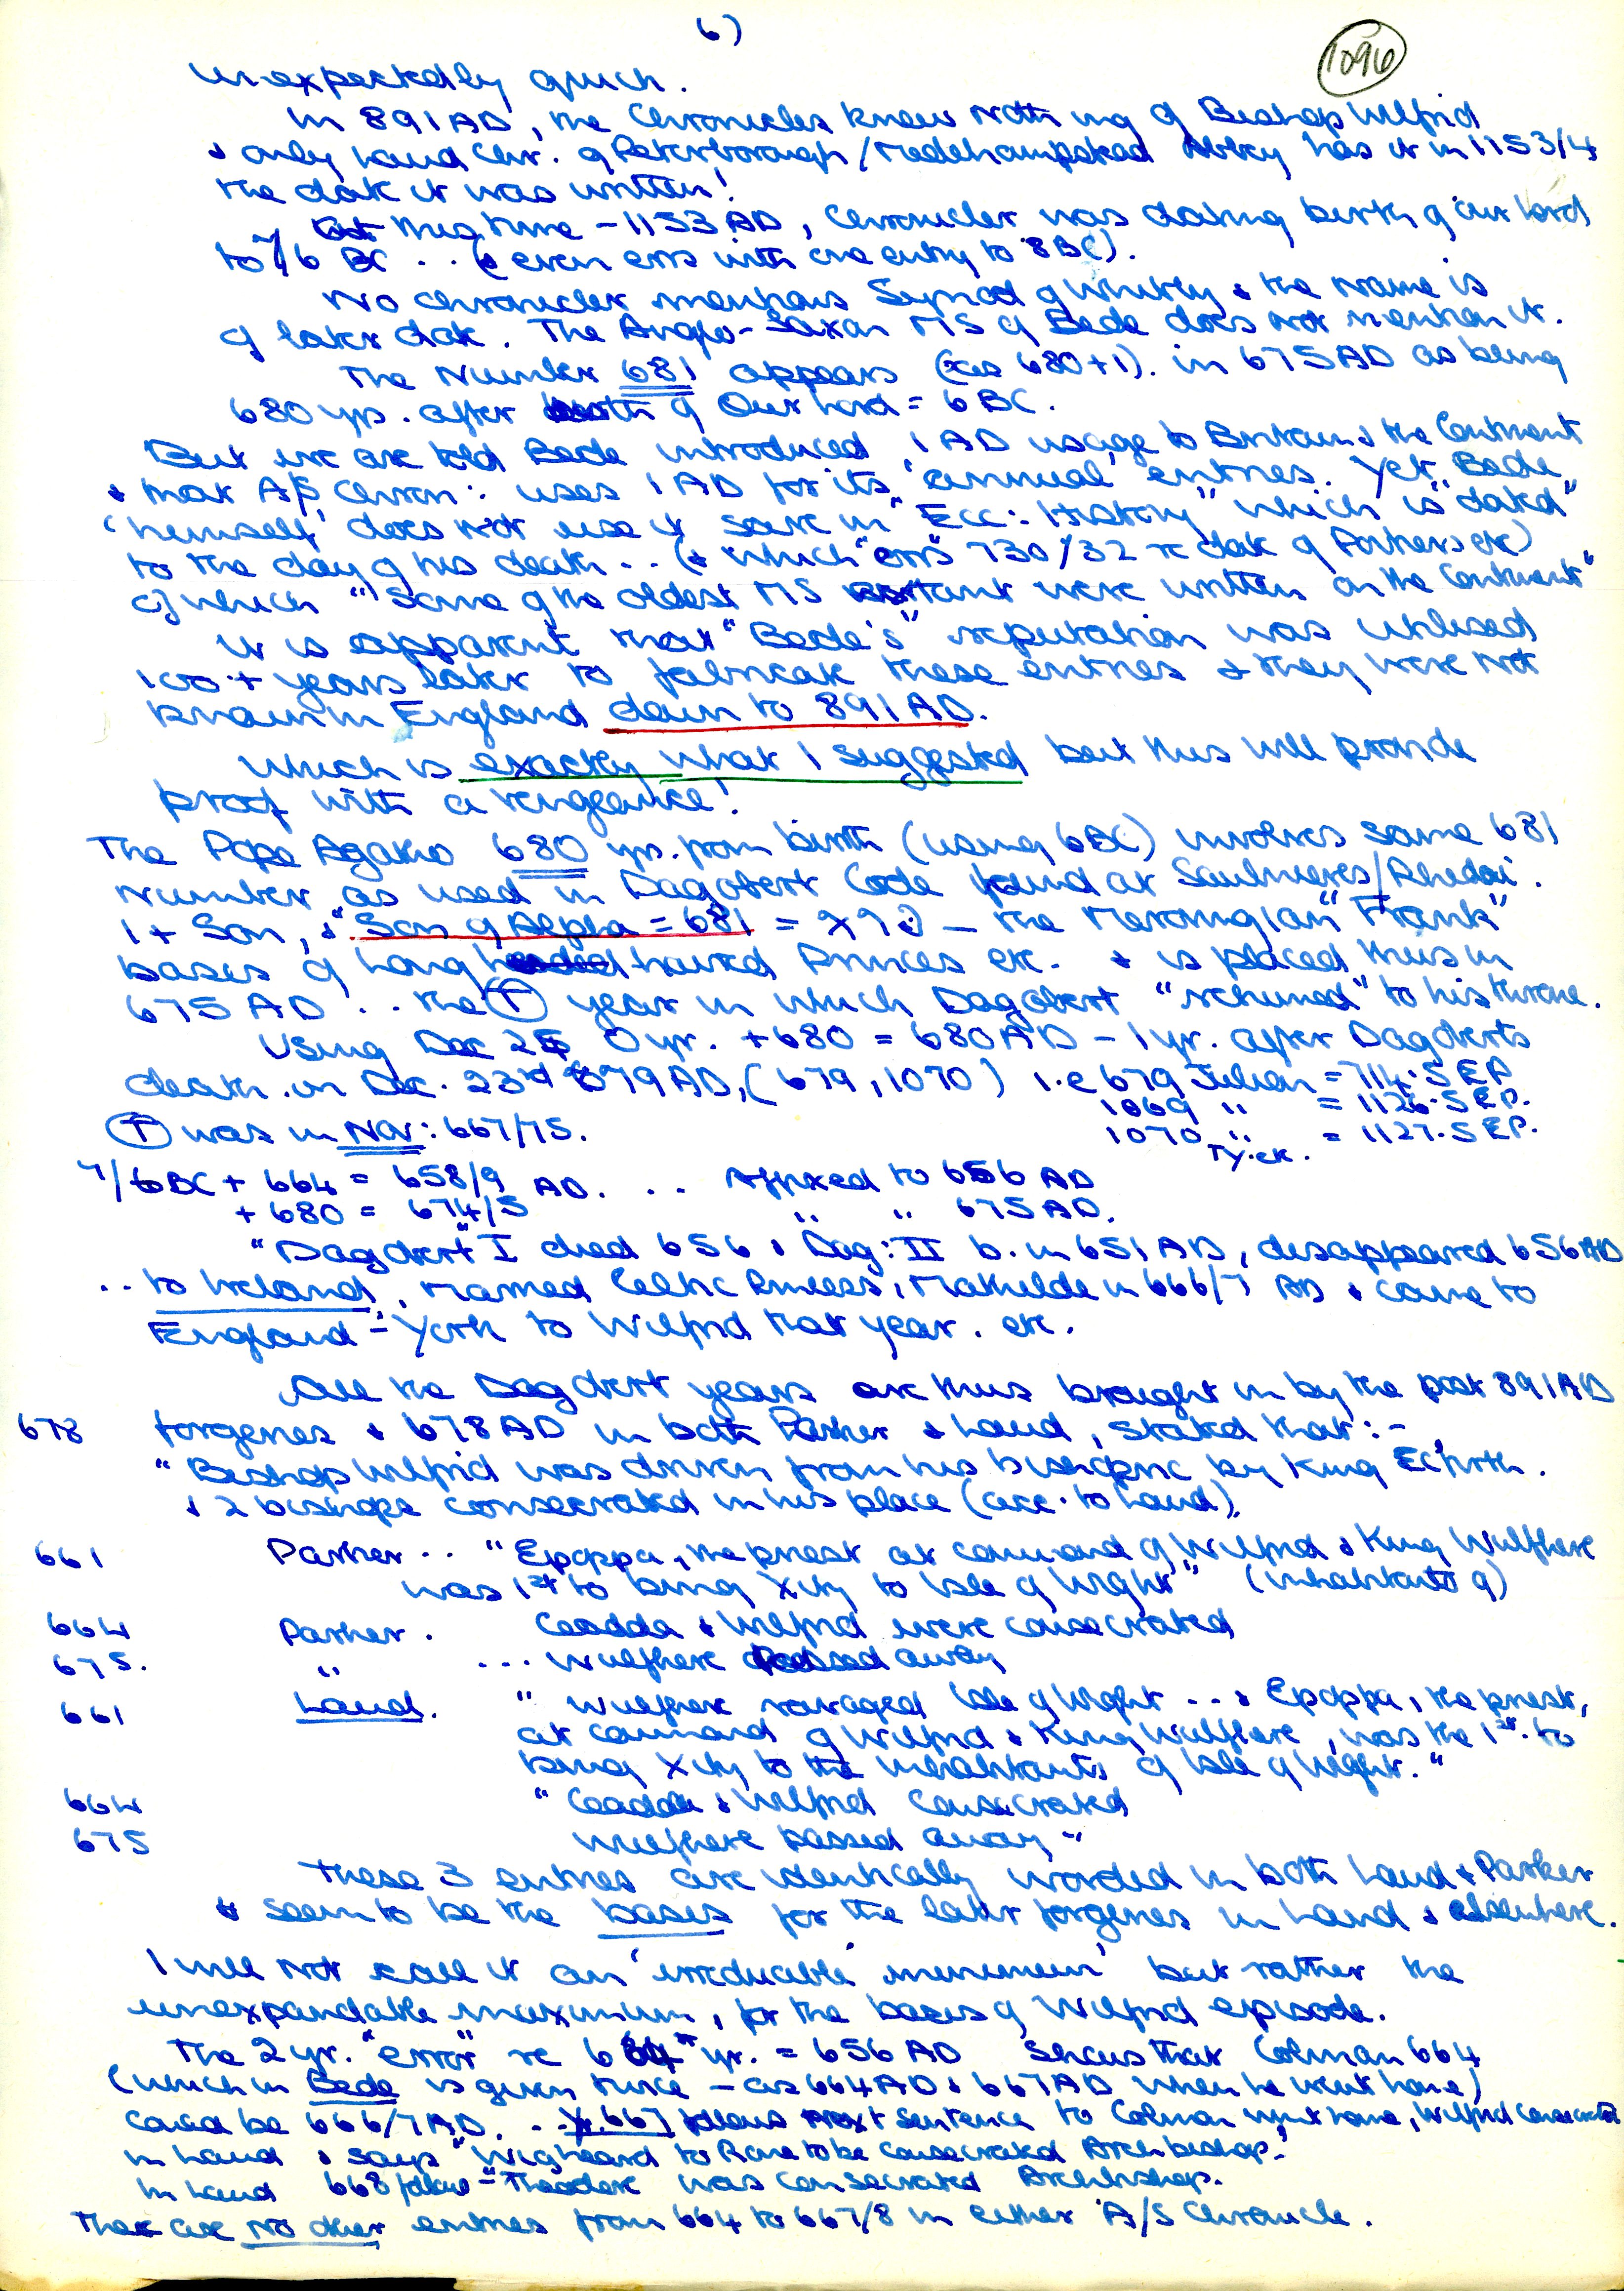 6)
1096
unexpectedly quick.
In 891 AD, the Chronicles knew nothing of Bishop Wilfrid
& only Laud Chr. of Peterborough/Medehampstead Abbey has it in 1153/4
the date it was written!
this time - 1153 AD, Chronicler was dating birth of our Lord
to 7/6 BC .. (& even errs with one entry to 8 BC).
No Chronicler mentions Synod of Whitby & the name is
of later date. The Anglo-Saxon MS of Bede does not mention it.
The Number 681 appears (as 680+1). in 675 AD as being
680 yrs. after birth of Our Lord = 6 BC.
But we are told Bede introduced 1 AD usage to Britain & the Continent
& that A/S Chron: uses 1 AD for its 'annual' entries. Yet Bede
'himself' does not use it save in "Ecc: History" which is "dated"
to the day of his death .. (& which "errs" 730/32 re date of Poitiers etc)
of which "Some of the oldest MS extant were written on the Continent"
It is apparent that "Bede's" reputation was utilised
100+ years later to fabricate these entries & they were not
known in England down to 891 AD.
Which is exactly what I suggested but this will provide
proof with a vengeance!
The Pope Agatho 680 yrs. from birth (using 6BC) involves same 681
number as used in Dagobert Code found at Saulnieres/Rhedai.
1 + Son, & "Son of Alpha = 681 = - the Merovingian "Frank"
bases of Long haired Princes etc. & is placed thus in
675 AD .. the (T) year in which Dagobert "returned" to his throne.
Using Dec 25, 0 yr. + 680 = 680 AD - 1 yr. after Dagoberts
death in Dec. 23rd 679 AD, (679, 1070) i.e 679 Julian = 714.SEP
1069 " = 1126.SEP.
(T) was in Nov: 667/75.
1070 " = 1127.SEP.
Ty. ck.
7/6BC + 664 = 658/9 AD. .. Affixed to 656 AD
+ 680 = 674/5 " " 675 AD.
"Dagobert" I died 656 & Dag: II b. in 651 AD, disappeared 656 AD
.. to Ireland, married Celtic Princess, Mathilde in 666/7 AD & came to
England - York to Wilfrid that year. etc.
All the Dagobert years are thus brought in by the post 891 AD
678 forgeries & 678 AD in both Parker & Laud, stated that:-
"Bishop Wilfrid was driven from his bishopric by King Ecfrith.
& 2 bishops consecrated in his place (acc. to Laud).
661 Parker .. "Epoppa, the priest at command of Wilfrid & King Wulfhere
was 1st to bring Xity to Isle of Wight" (inhabitants of)
664 Parker. Ceadda & Wilfrid were consecrated
675. " ... Wulfhere passed away
661 Laud. " Wulfhere ravaged Isle of Wight ... & Epoppa, the priest,
at command of Wilfrid & King Wulfhere, was the 1st. to
bring Xity to the inhabitants of Isle of Wight."
664 " Ceadda & Wilfrid consecrated
675 Wulfhere passed away "
These 3 entries are identically worded in both Laud & Parker
& seem to be the bases for the later forgeries in Laud & elsewhere.
I will not call it an 'irreducible minimum' but rather the
unexpandable maximum, for the bases of Wilfrid episode.
The 2 yr. "error" re 664 yr. = 656 AD shows that Colman 664
(which in Bede is given twice - as 664 AD & 667 AD when he went home)
could be 666/7 AD. .. Yr. 667 follows next sentence to Colman went home, Wilfrid consecrated
in Laud & says "Wigheard to Rome to be consecrated Archbishop."
In Laud 668 follows "Theodore was consecrated Archbishop.
There are no other entries from 664 to 667/8 in either A/S Chronicle.